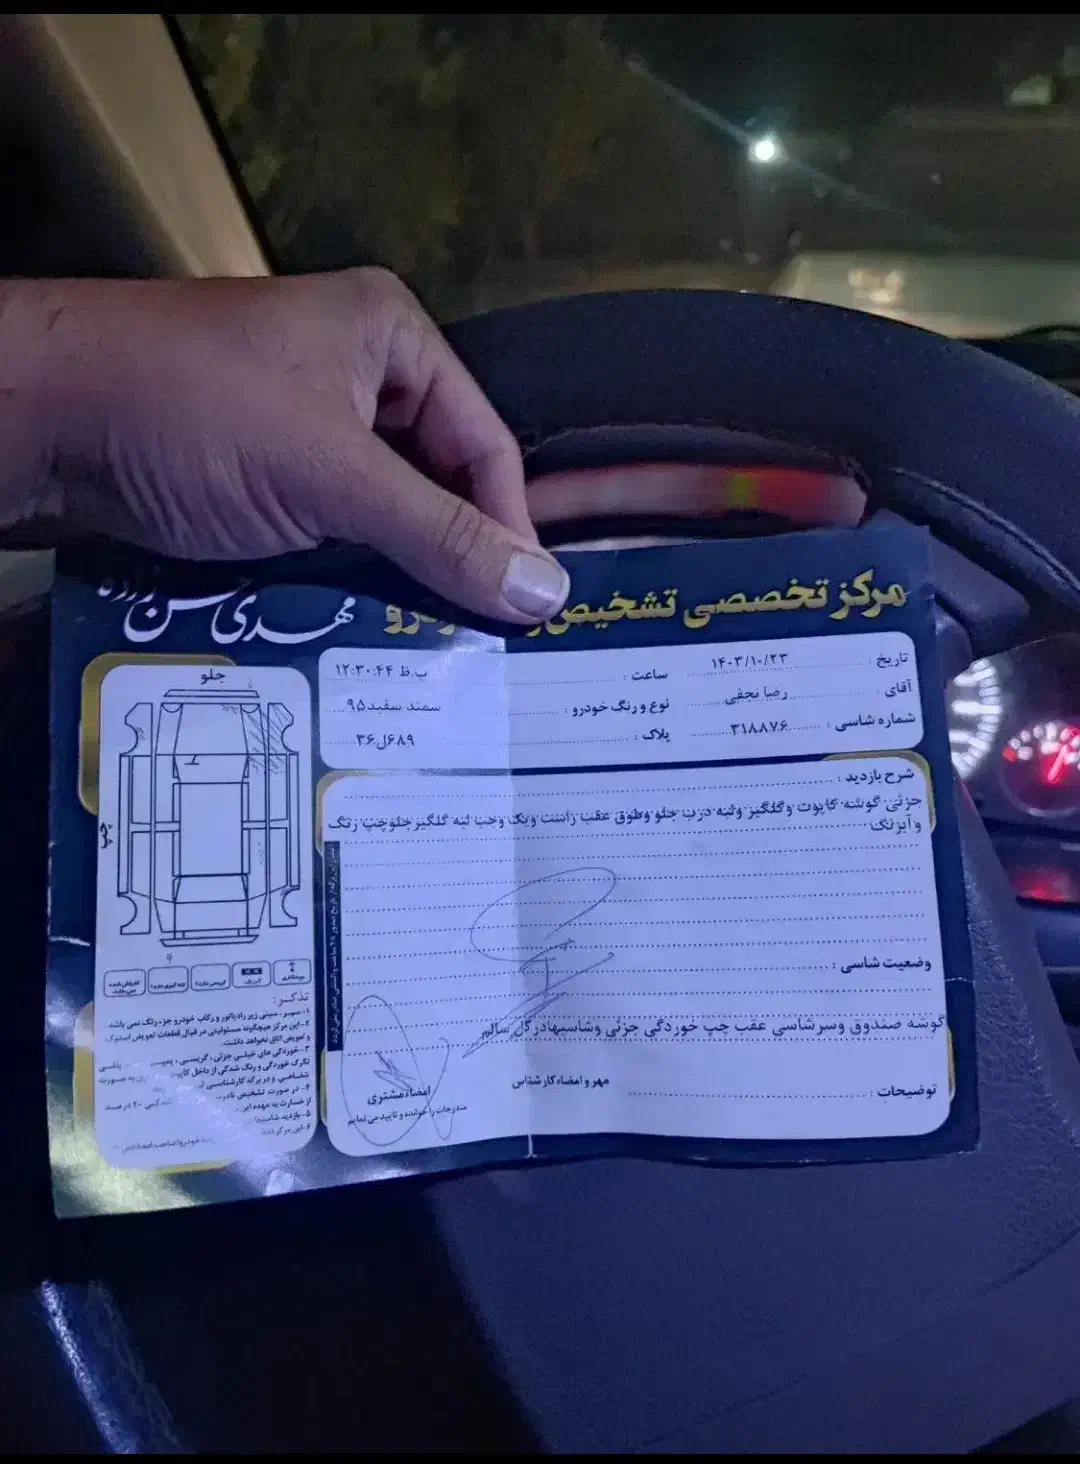 مرکز تخصصی تشخیص
مهدی حسن زاده
تاریخ : ۱۴۰۳/۱۰/۲۳ ساعت : ۱۲:۳۰:۴۴ ب.ظ
آقای : رضا نجفی نوع و رنگ خودرو : سمند سفید۹۵
شماره شاسی : ۳۱۸۸۷۶ پلاک : ۶۸۹ل۳۶
شرح بازدید :
جزئی گوشه کاپوت وگلگیر ولبه درب جلو وطوق عقب راست ویک وجب لبه گلگیر جلوچپ رنگ
وآبرنگ
وضعیت شاسی :
گوشه صندوق وسرشاسی عقب چپ خوردگی جزئی وشاسیهادرکل سالم
توضیحات :
مهر و امضاء کارشناس
امضاء مشتری
مندرجات را خوانده و تایید می نمایم
جلو
چپ
تذکر:
۱-سپر، سینی زیر رادیاتور و رکاب خودرو جزء رنگ نمی باشد.
۲-این مرکز هیچگونه مسئولیتی در قبال قطعات تعویض استوک
و تعویض اتاق نخواهد داشت.
۳- خوردگی های خیلی جزئی ، گریسی ،
تگرگ خوردگی و رنگ شدگی از داخل
۴- در صورت تشخیص
از خسارت به عهده این
۵- بازدید
۶-این مرکز